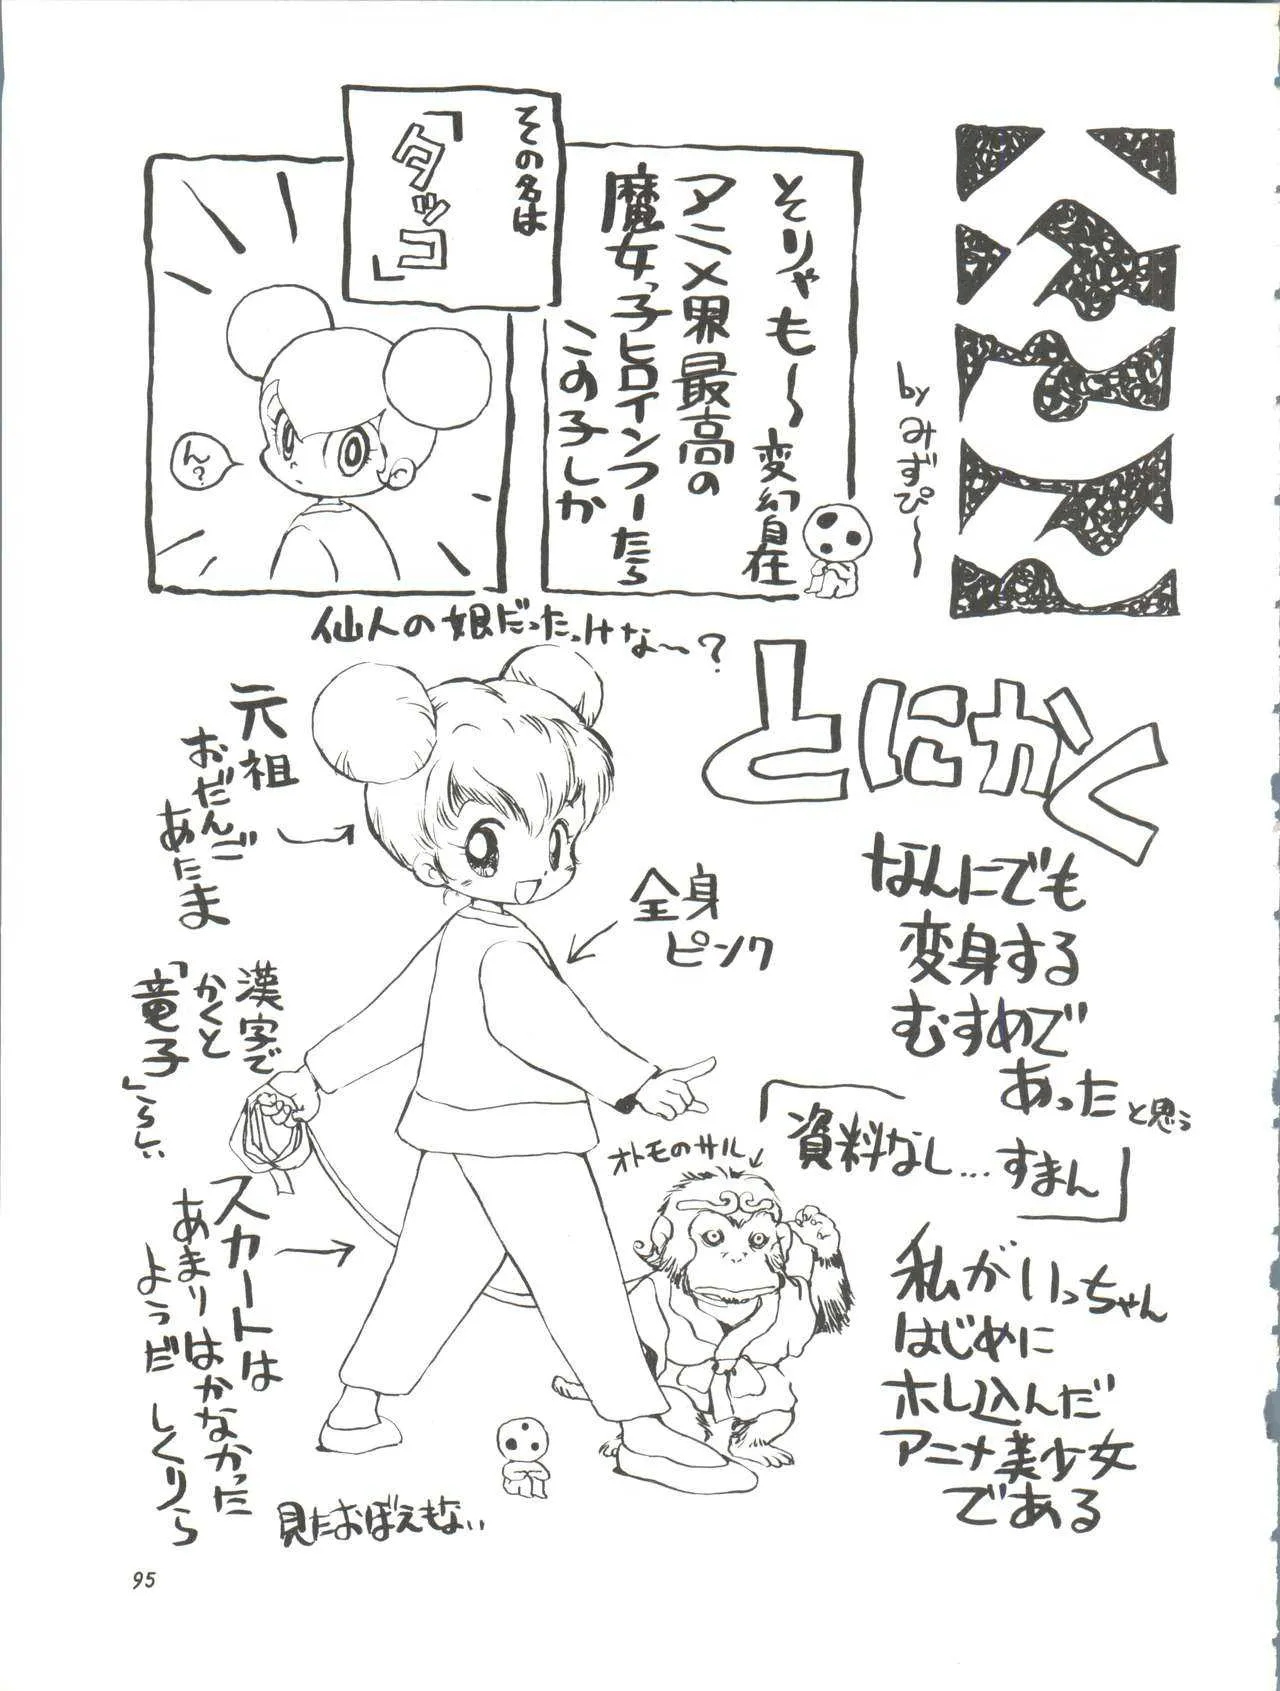 そりゃも〜
変幻自在
アニメ界最高の
魔女っ子ヒロインつーたら
この子しか
その名は
「タッコ」
ん?
byみずぴ〜
仙人の娘だったっけな〜?
とにかく
なんにでも
変身する
むすめで
あったと思う
「資料なし…すまん」
私がいっちゃん
はじめに
ホレ込んだ
アニメ美少女
である
元祖
おだんご
あたま
全身
ピンク
漢字で
かくと
「竜子」らしい
オトモのサル
スカートは
あまりはかなかった
ようだ しくしく
見たおぼえもない
95